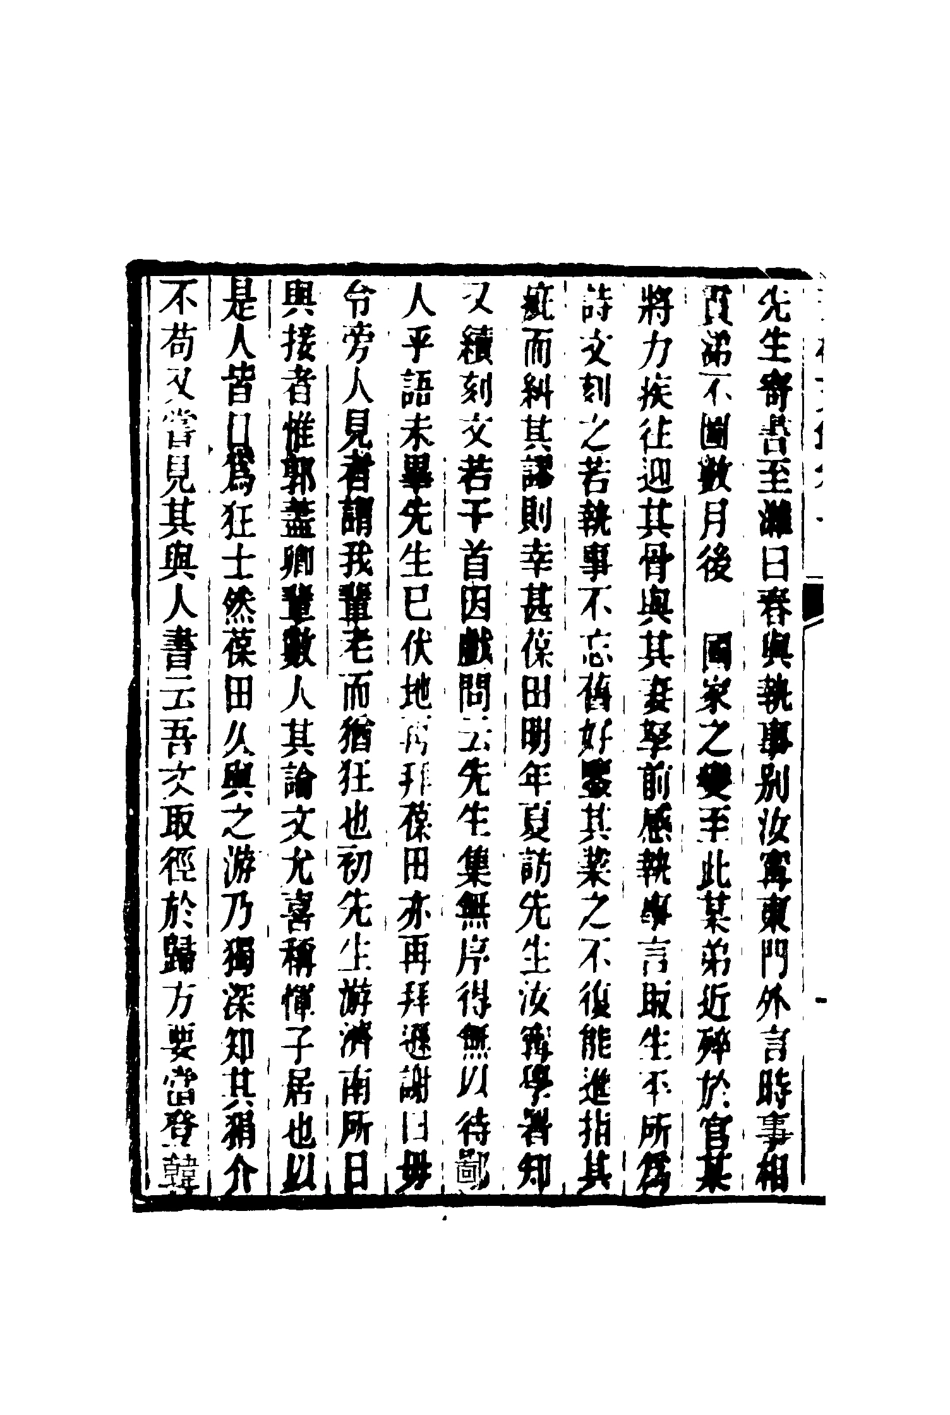 先生寄書至濰曰春與執事別汝寗東門外言時事相
賈涕不圖數月後 國家之變至此某弟近殚於官某
將力疾往迎其骨與其妻孥前感執事言取生平所爲
詩文刻之若執事不忘舊好鑒其業之不復能進指其
疵而糾其謬則幸甚葆田明年夏訪先生汝甯學署知
又續刻文若干首因戲問云先生集無序得無以待鄙
人乎語未畢先生已伏地再拜葆田亦再拜遜謝曰毋
令旁人見者謂我輩老而猶狂也初先生游濟南所日
與接者惟郭蓋卿輩數人其論文尤喜稱惲子居也以
是人皆目爲狂士然葆田久與之游乃獨深知其狷介
不苟又嘗見其與人書云吾文取徑於歸方要當登韓